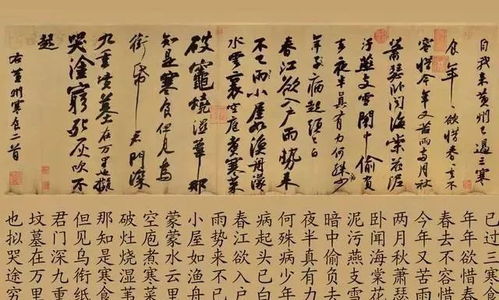 自我來黃州已過三寒
食年〻欲惜春〻去不
容惜今年又苦雨兩月秋
蕭瑟卧聞海棠花泥
汙燕支雪闇中偷負
去夜半真有力何殊少
年子病起頭已白
春江欲入戶雨勢來
不已雨小屋如漁舟濛〻
水雲裏空庖煮寒菜
破竈燒濕葦那
知是寒食但見烏
銜帋君門深
九重墳墓在万里也擬
哭塗窮死灰吹不
起
右黃州寒食二首
已过三寒食
年年欲惜春
春去不容惜
今年又苦雨
两月秋萧瑟
卧闻海棠花
泥污燕支雪
暗中偷负去
夜半真有力
何殊病少年
病起头已白
春江欲入户
雨势来不已
小屋如渔舟
蒙蒙水云里
空庖煮寒菜
破灶烧湿苇
那知是寒食
但见乌衔纸
君门深九重
坟墓在万里
也拟哭途穷